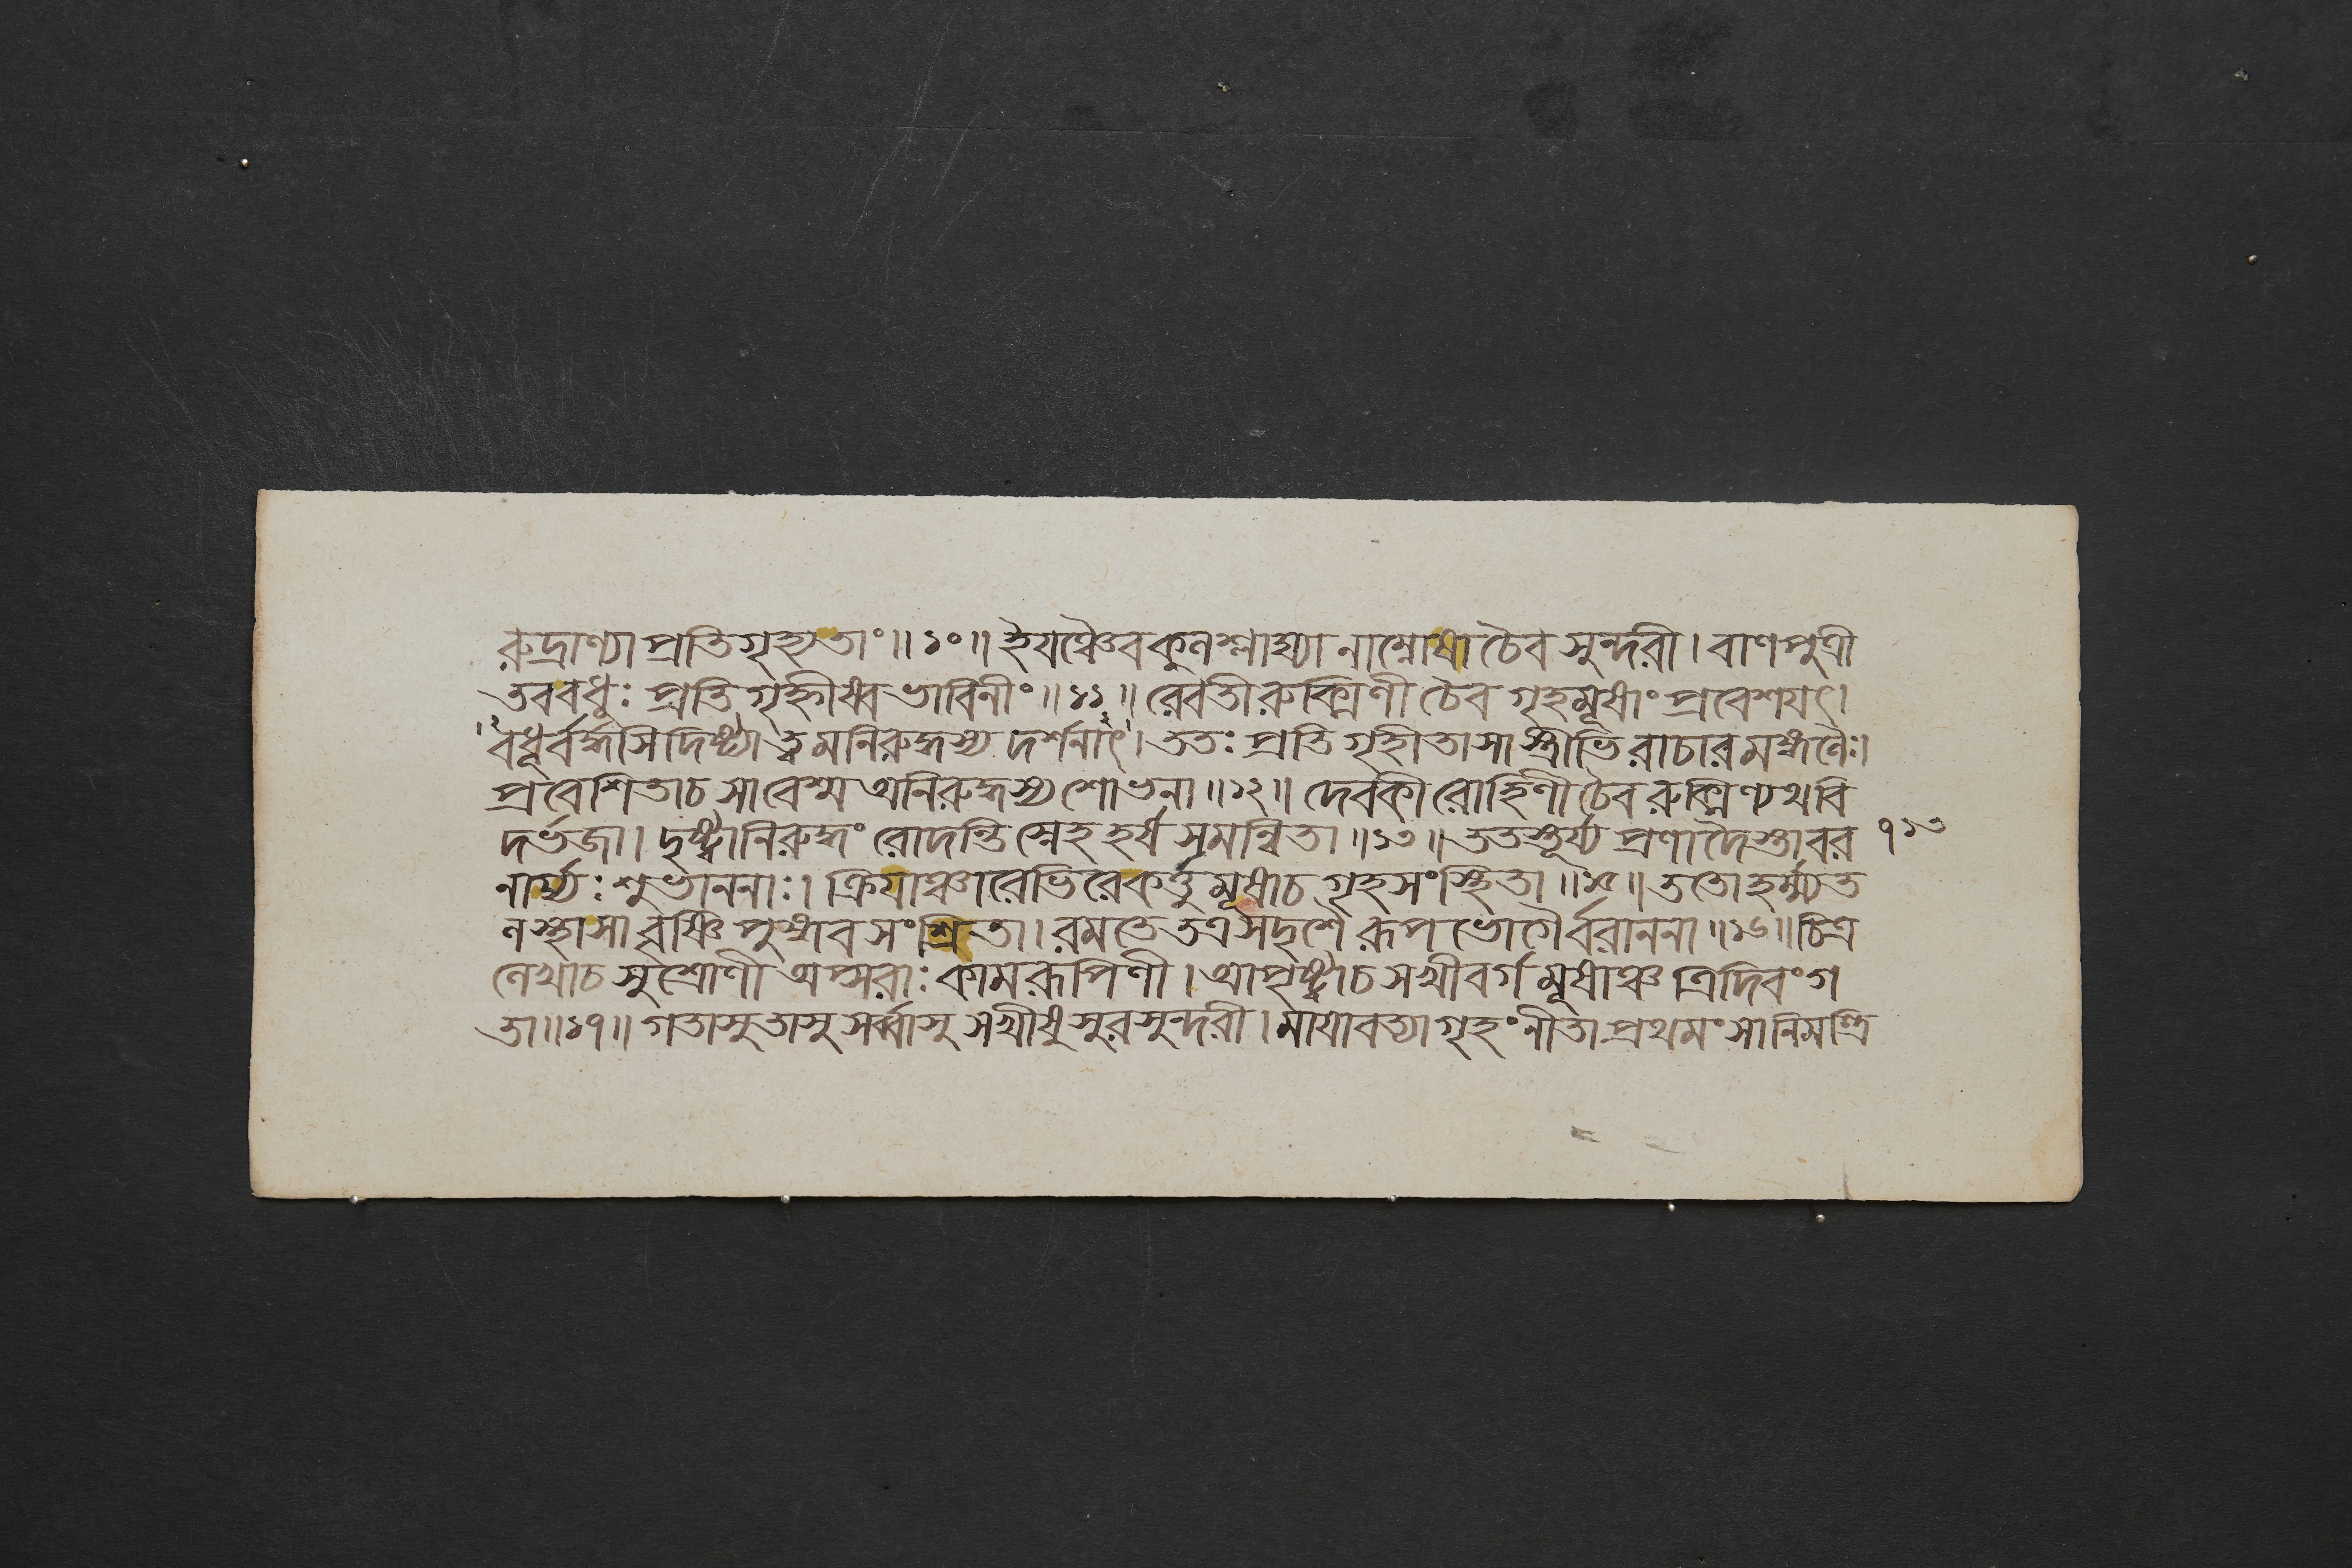 রুদ্রাণ্যা প্রতিগৃহ্যতাং॥১০॥ ইয়ঞ্চৈব কুলশ্লাঘ্যা নাম্নোষা চৈব সুন্দরী। বাণপুত্রী
তব বধূঃ প্রতিগৃহ্নীষ্ব ভাবিনীং॥১১॥ রেবতী রুক্মিণী চৈব গৃহমূষাং প্রবেশয়ৎ।
বধূর্বর্দ্ধসি দিষ্ট্যা ত্বমনিরুদ্ধস্য দর্শনাৎ। ততঃ প্রতিগৃহীতা সা স্ত্রীভিরাচারমঙ্গলৈঃ।
প্রবেশিতা চ সা বেশ্ম অনিরুদ্ধস্য শোভনা॥১২॥ দেবকী রোহিণী চৈব রুক্মিণ্যথ বি
দর্ভজা। দৃষ্ট্বানিরুদ্ধং রোদন্তি স্নেহহর্ষসমন্বিতা॥১৩॥ ততস্তূর্য্য প্রণাদৈস্তা বর ৭১৩
নার্য্যঃ শুভাননাঃ। ক্রিয়াঞ্চারেভিরে কর্ত্তুমূষা চ গৃহসংস্থিতা॥১৫॥ ততো হর্ম্ম্যত
লস্থা সা বৃষ্ণিপুঙ্গবসংশ্রিতা। রমতে তত্র সদৃশৈ রূপভোগৈর্বরাননা॥১৬॥ চিত্র
লেখা চ সুশ্রোণী অপ্সরাঃ কামরূপিণী। আপৃষ্ট্বা চ সখীবর্গমূষাঞ্চ ত্রিদিবং গ
তা॥১৭॥ গতাসু তাসু সর্ব্বাসু সখীষু সুরসুন্দরী। মায়াবত্যা গৃহং নীতা প্রথমং সা নিমন্ত্রি